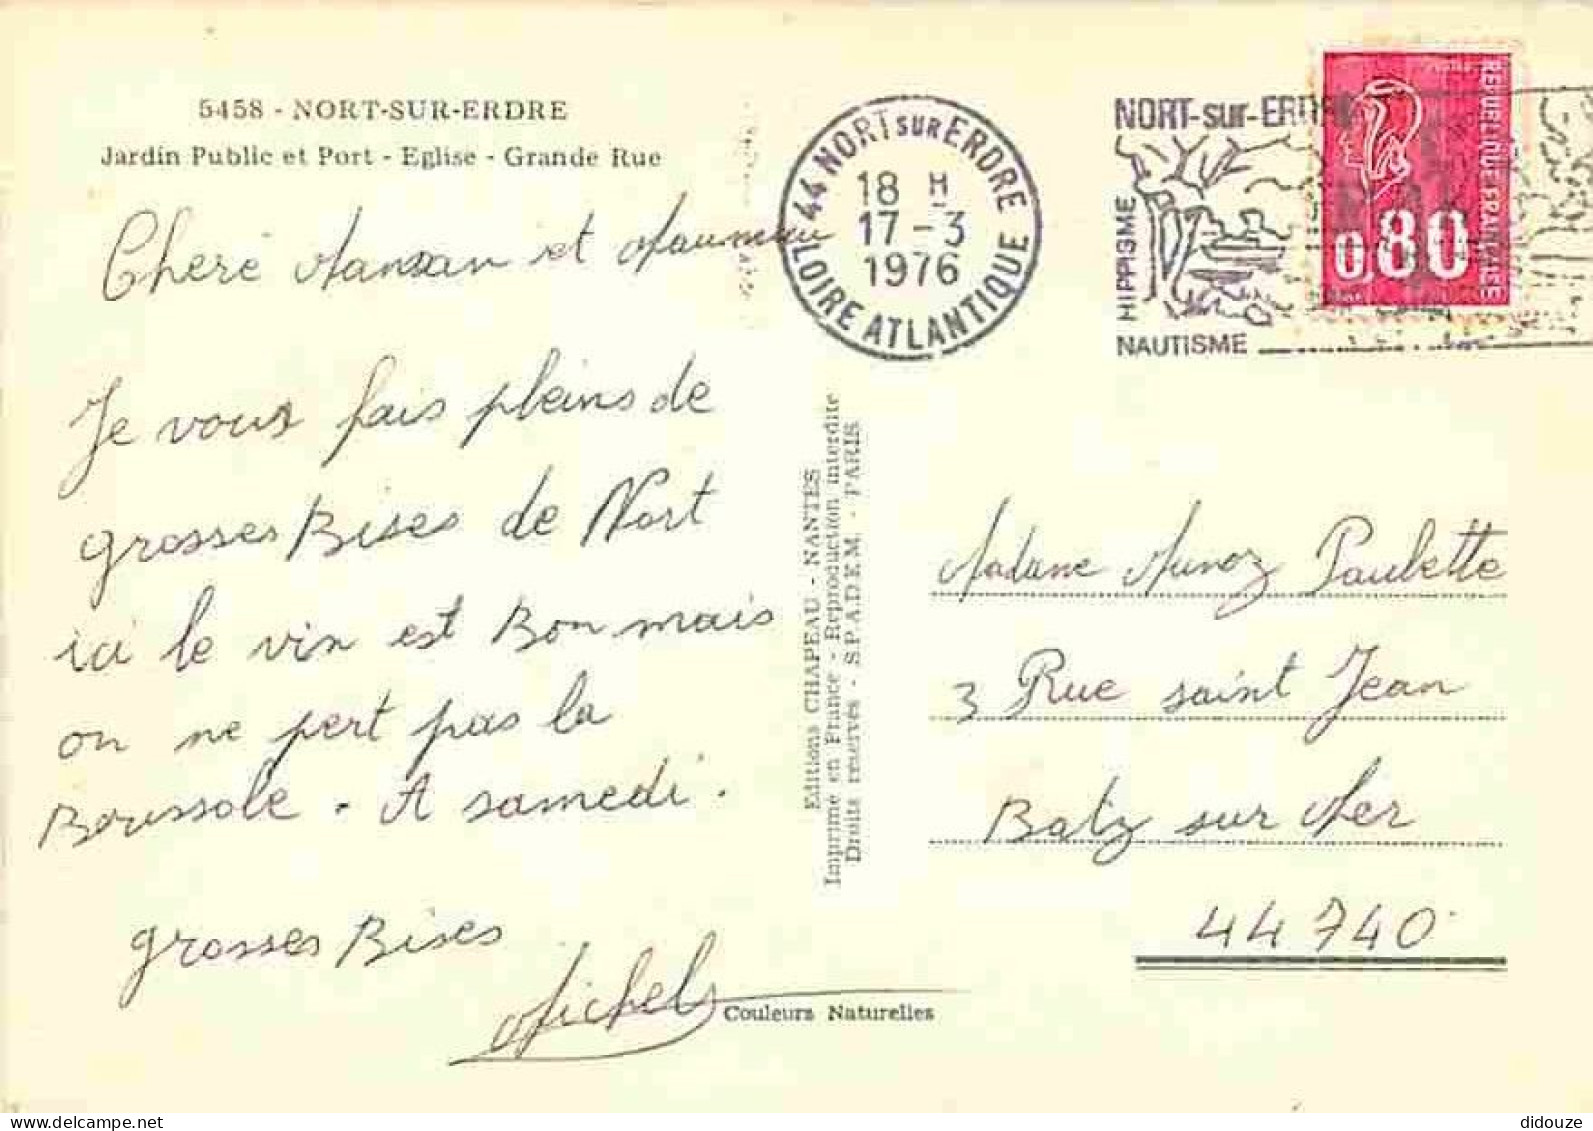 5458 - NORT-SUR-ERDRE
Jardin Public et Port - Eglise - Grande Rue
Cheré Maman et
Je vous fais pleins de
grosses Bises de Nort
ici le vin est Bon mais
on ne pert pas la
Boussole. A samedi.
grosses Bises
Michel
Couleurs Naturelles
Editions CHAPEAU - NANTES
Imprimé en France - Reproduction interdite
Droits réservés - S.P.A.D.E.M. - PARIS
44 NORT SUR ERDRE
18 H
17-3
1976
LOIRE ATLANTIQUE
NORT-sur-ERDRE
HIPPISME
NAUTISME
REPUBLIQUE FRANCAISE
0,80
Madame Munoz Paulette
3 Rue saint Jean
Batz sur Mer
44740
delcampe.net
didouze